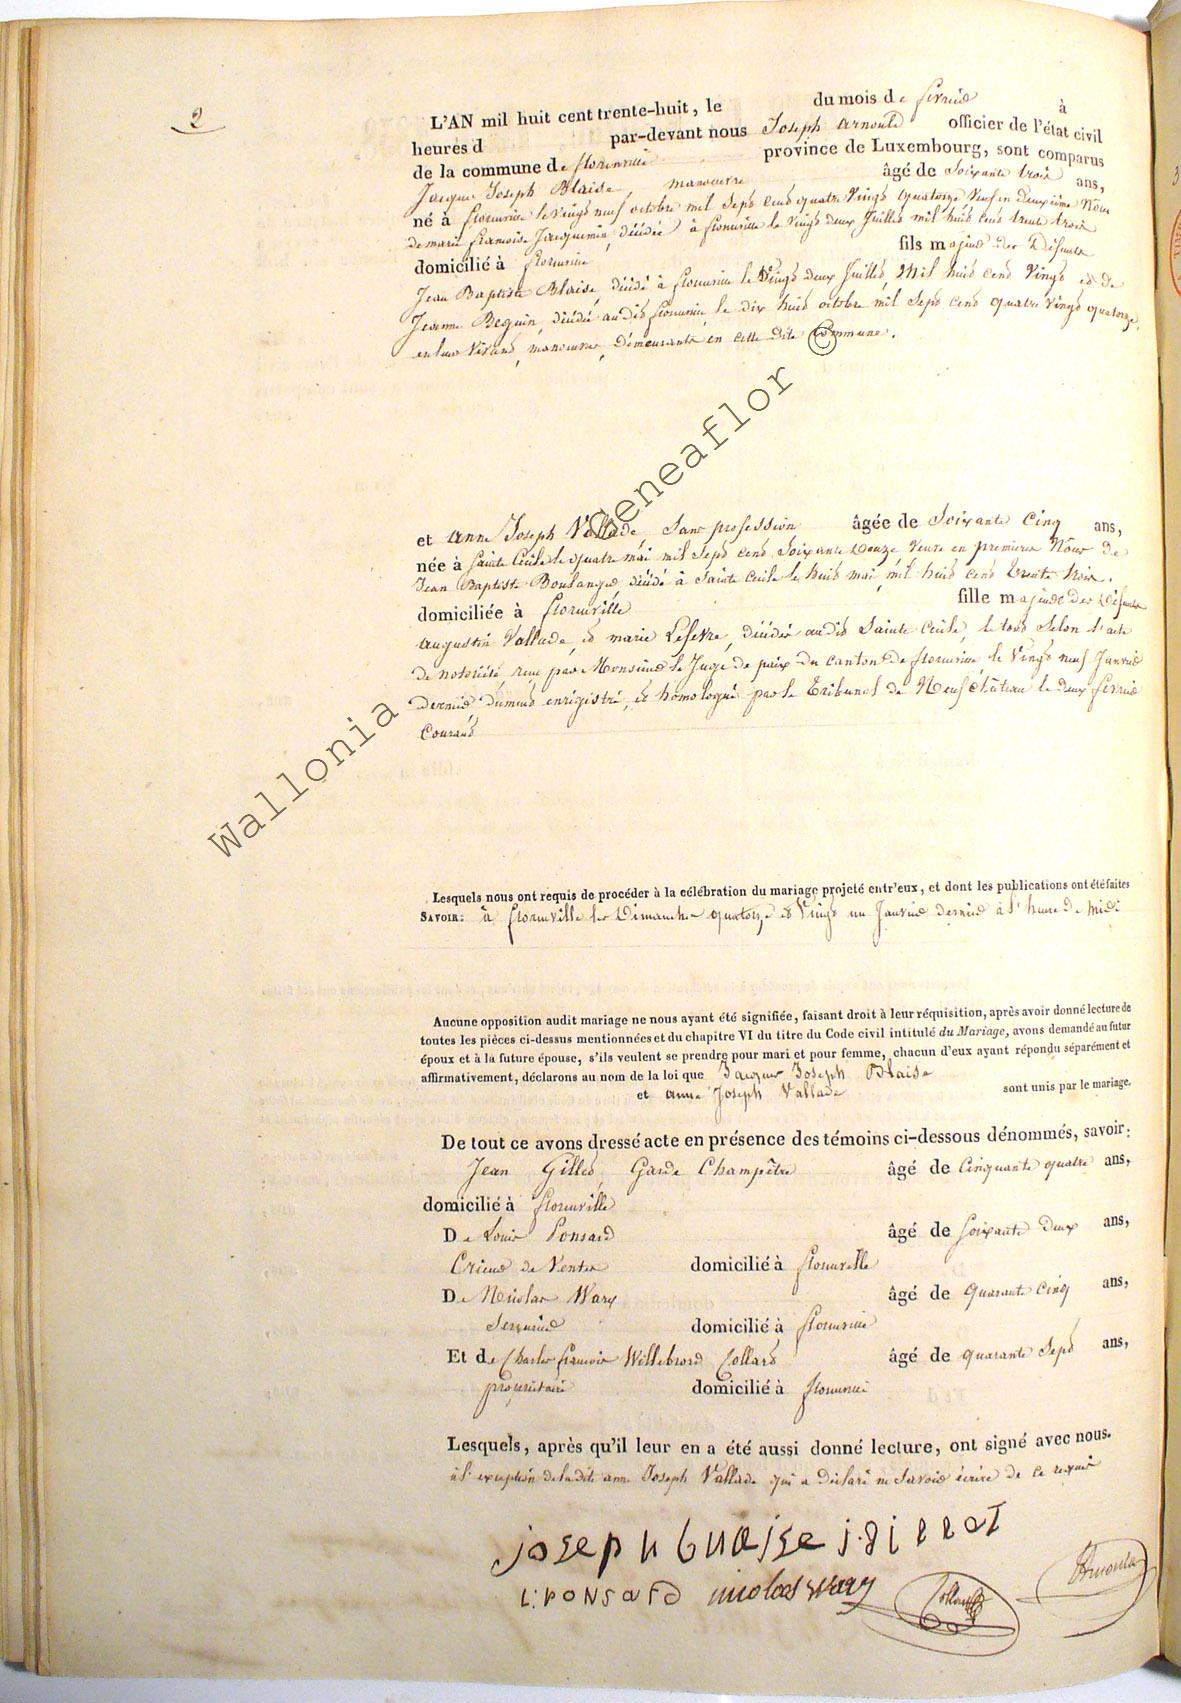 2
L'AN mil huit cent trente-huit, le du mois de fevrier à
heures d par-devant nous Joseph Arnould officier de l'état civil
de la commune de florenville province de Luxembourg, sont comparus
Jacque Joseph Blaise, manoeuvre âgé de Soixante trois ans,
né à florenville le vingt neuf octobre mil sept cent quatre vingt quatorze veuf en deuxième Nôce
de marie francoise Jacquemin, décédée à florenville le vingt deux Juillet mil huit cent trente trois
domicilié à florenville fils majeur des défunts
Jean Baptiste Blaise, décédé à florenville le vingt deux Juillet, Mil huit cent vingt et de
Jeanne Beguin, décédée audit florenville le dix huit octobre mil sept cent quatre vingt quatorze,
en leur vivant, manoeuvres, démeurants en cette dite Commune.
et anne Joseph Vallade, Sans profession âgée de Soixante Cinq ans,
née à Sainte Cécile le quatre mai mil Sept cent Soixante douze veuve en premieres Nôces de
Jean Baptiste Boulanger décédé à Sainte Cecile le huit mai, mil huit cent trente trois.
domiciliée à florenville fille majeure des défunts
augustin Vallade, et marie Lefevre, décédés audit Sainte Cécile, le tout Selon l'acte
de notoriété, reçu par Monsieur le Juge de paix du canton de florenville le vingt neuf Janvier
dernier dument enrigistré, et homologué par le Tribunal de Neufchâteau le deux fevrier
Courant
Lesquels nous ont requis de procéder à la célébration du mariage projeté entr'eux, et dont les publications ont été faites
SAVOIR: à florenville les Dimanches quatorze et vingt un Janvier dernier à l'heure de midi
Aucune opposition audit mariage ne nous ayant été signifiée, faisant droit à leur réquisition, après avoir donné lecture de
toutes les pièces ci-dessus mentionnées et du chapitre VI du titre du Code civil intitulé du Mariage, avons demandé au futur
époux et à la future épouse, s'ils veulent se prendre pour mari et pour femme, chacun d'eux ayant répondu séparément et
affirmativement, déclarons au nom de la loi que Jacques Joseph Blaise
et anne Joseph Vallade sont unis par le mariage.
De tout ce avons dressé acte en présence des témoins ci-dessous dénommés, savoir:
Jean Gilles, Garde Champêtre âgé de Cinquante quatre ans,
domicilié à florenville
De Louis Ponsard âgé de Soixante deux ans,
Crieur de Ventes domicilié à florenville
De Nicolas Wary âgé de quarante Cinq ans,
Serrurier domicilié à florenville
Et de Charles francois Willebrord Collard âgé de quarante Sept ans,
propriétaire domicilié à florenville
Lesquels, après qu'il leur en a été aussi donné lecture, ont signé avec nous.
à l'exception de ladite anne Joseph Vallade qui a déclaré ne savoir écrire de ce requis
joseph blaise
L: PONSARD nicolas wary Collard Arnould
Wallonia Geneaflor ©